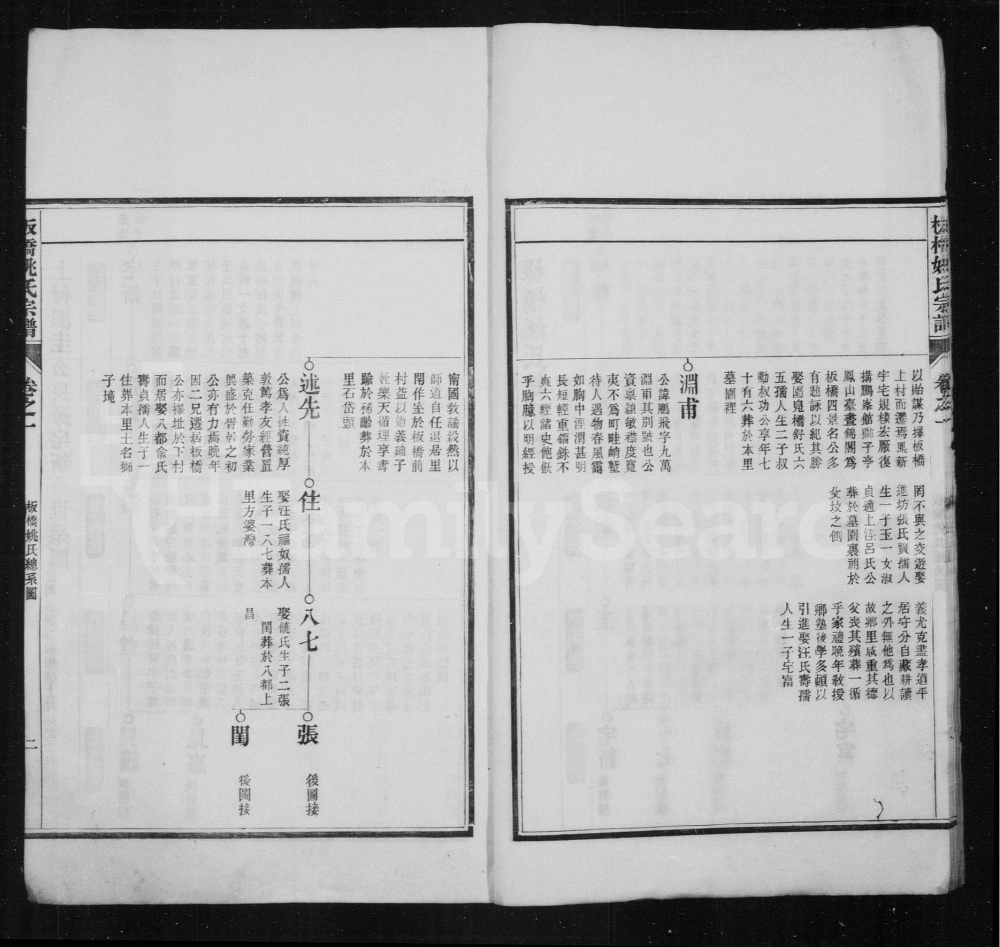 板橋姚氏宗譜
卷之一
以貽謀乃擇板橋
上村而遷焉鳳新
宇宅規模宏厰復
搆鵬峯館獅子亭
鳳山臺晝錦閣爲
板橋四景名公多
有題詠以紀其勝
娶園嵬橋舒氏六
五孺人生二子叔
勳叔功公享年七
十有六葬於本里
墓園裡
淵甫
公諱鵬飛字九萬
淵甫其別號也公
資稟穎敏襟度寬
夷不爲町畦峭塹
待人遇物春風靄
如胸中涇渭甚明
長短輕重錙銖不
爽六經諸史飽飫
乎胸臆以明經授
罔不與之交遊娶
進坊張氏賢孺人
生一子玉一女淑
貞適上
呂氏公
葬於墓園裏祔於
父坟之側
義尤克盡孝道平
居守分自藏耕讀
之外無他爲也以
故鄉里咸重其德
父喪其殯葬一循
乎家禮晚年敎授
鄉塾後學多頼以
引進娶汪氏壽孺
人生一子宅富
甯國敎諭毅然以
師道自任退居里
閈作室於板橋前
村益以道義鏞子
姓樂天循理享壽
踰於
齡葬於本
里石岱頭
述先
公爲人性資純厚
敦篤孝友經營置
築克仕勤勞家業
興盛於晢弟之初
公亦有力焉晚年
因二兄遷居板橋
公亦擇址於下村
而居娶八都兪氏
壽貞孺人生子一
住葬本里土名獅
子墝
住
娶汪氏福奴孺人
生子一八七葬本
里方婆灣
八七
娶饒氏生子二張
閏葬於八都上
昌
張
後圖接
閏
後圖接
板橋姚氏總系圖
二
板橋姚氏宗譜
卷之一
FamilySearch